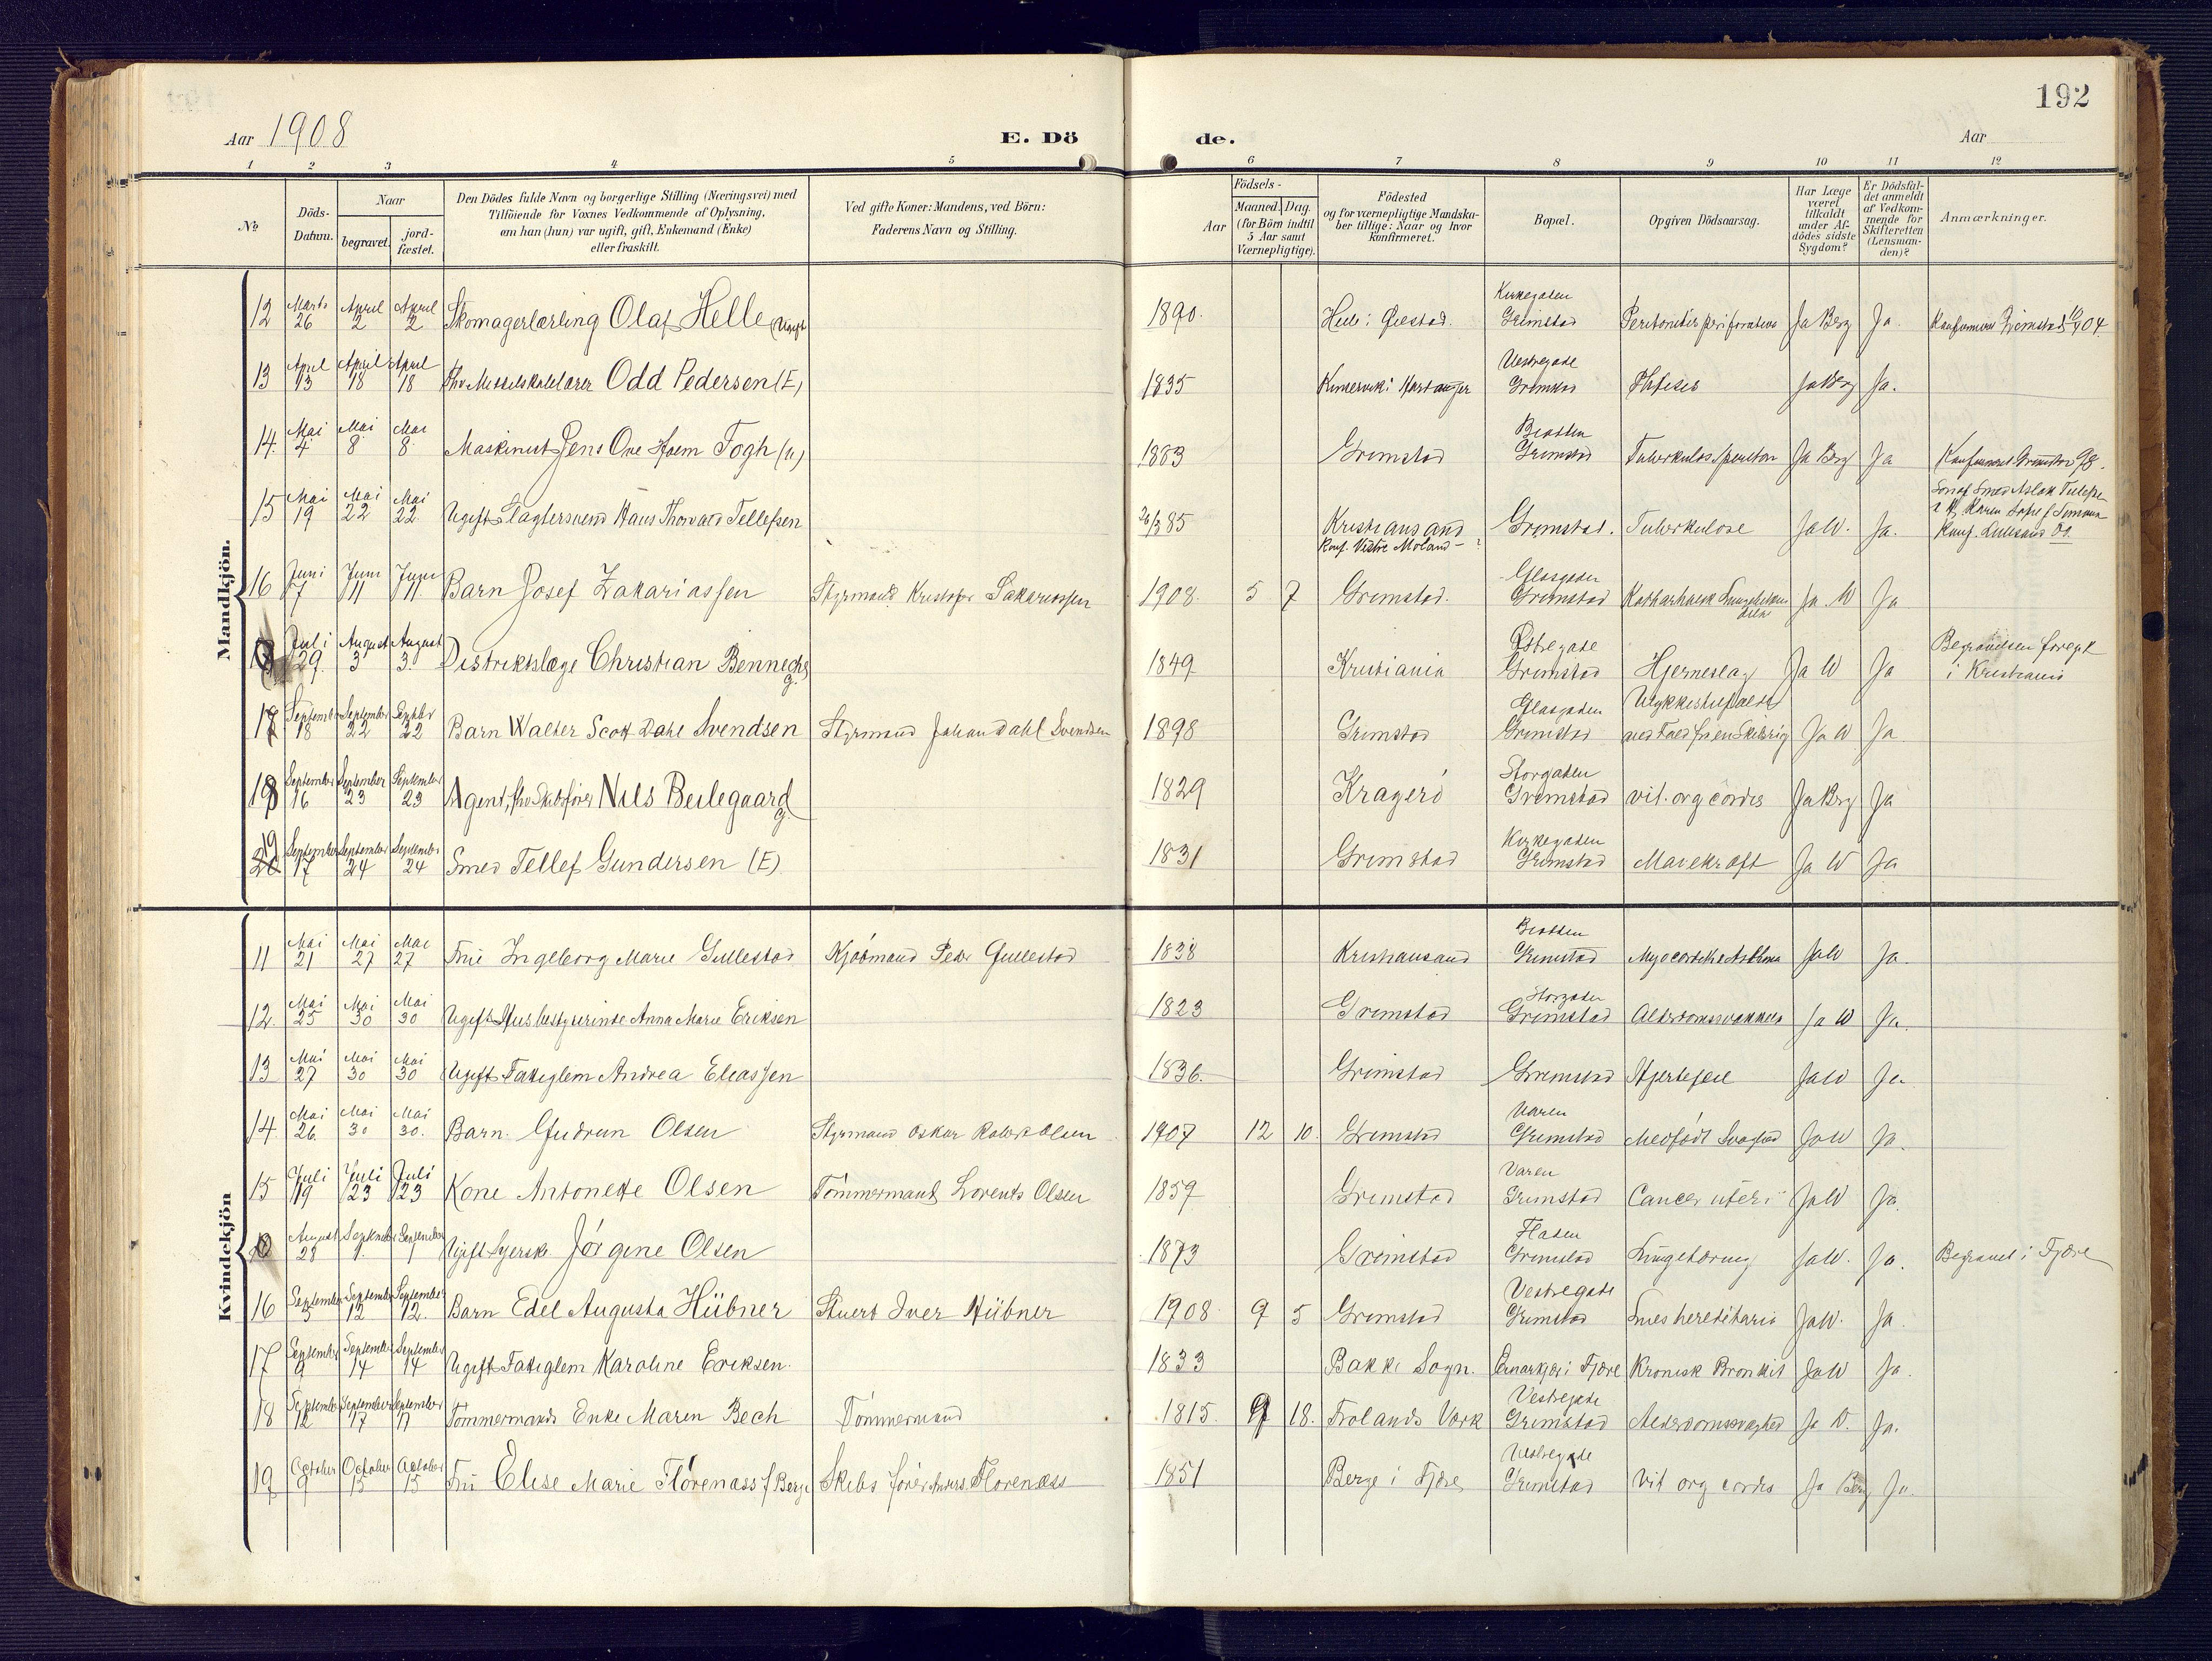 192
Aar 1908
E. Dö de.
Aar
1 2 3 4 5 6 7 8 9 10 11 12
№
Döds-Datum.
Naar
begravet.
jord-fæstet.
Den Dödes fulde Navn og borgerlige Stilling (Næringsvei) med
Tilföiende for Voxnes Vedkommende af Oplysning,
om han (hun) var ugift, gift, Enkemand (Enke)
eller fraskilt.
Ved gifte Koner: Mandens, ved Börn:
Faderens Navn og Stilling.
Födsels-
Aar
Maaned. Dag.
(for Börn indtil
5 Aar samt
Værnepligtige).
Födested
og for værnepligtige Mandska-
ber tillige: Naar og hvor
Konfirmeret.
Bopæl.
Opgiven Dödsaarsag.
Har Læge
været
tilkaldt
under Af-
dödes sidste
Sygdom?
Er Dödsfal-
det anmeldt
af Vedkom-
mende for
Skifteretten
(Lensman-
den)?
Anmærkninger.
Mandkjön.
12 Marts 26 April 2 April 2 Skomagerlærling Olaf Helle (Ugift 1890. Øiestad. Kirkegaden Grimstad Ja Berg Ja. Grimstad 04.
13 April 13 April 18 April 18 Odd Pedersen (E) 1835 Vestregade Grimstad Ja Berg Ja.
14. Mai 4 Mai 8 Mai 8. Maskinist Jens Ove Fogh (u) 1883 Grimstad Biodden Grimstad Ja Berg Ja 98.
15 Mai 19 Mai 22 Mai 22. Ugift Slagtersvend Hans Thorvald Tellefsen 26/3 85 Kristiansand Konf. Vestre Moland - ? Grimstad. Tuberkulose Ja W. Ja. Søn af Smed Aslak Tellefsen
16 Juni 7 Juni 11 Juni 11. Barn Josef Zakariassen Styrmand Kristofer Sakariassen 1908. 5 7 Grimstad. Glasgaden Grimstad Ja. W Ja
Juli 29. August 3 August 3. Distriktslæge Christian Benneche g. 1849 Kristiania Østregade Grimstad Hjerneslag Ja W Ja Begravelsen foregik i Kristiania
17 September 18 September 22 Septbr 22 Barn Walter Scott Dahl Svendsen Styrmand Johan Dahl Svendsen 1898 Grimstad Glasgaden Grimstad Ja W Ja
18 September 16 September 23 September 23 Agent, fhv Skibsfører Nils Beilegaard g. 1829 Kragerö Storgaden Grimstad vit. org cordis Ja Brg Ja
19 September 17 September 24 September 24 Smed Tellef Gundersen (E) 1831 Grimstad Kirkegaden Grimstad Mavekræft Ja W Ja
Kvindekjön
11 Mai 21 Mai 27 Mai 27 Frue Ingeborg Marie Gullestad Kjøbmand Peder Gullestad 1838 Kristiansand Biodden Grimstad Ja W Ja.
12. Mai 25 Mai 30 Mai 30 Ugift Husbestyrerinde Anna Marie Eriksen 1823 Grimstad Storgaden Grimstad Ja W Ja.
13 Mai 27 Mai 30 Mai 30 Ugift Fattiglem Andrea Eliassen 1836. Grimstad Grimstad Hjertefeil Ja W Ja
14. Mai 26. Mai 30 Mai 30. Barn. Gudrun Olsen Styrmand Oskar Robert Olsen 1907 12 10. Grimstad Varen Grimstad Medfödt Svaghed Ja W Ja.
15 Juli 19 Juli 23 Juli 23 Kone Antonette Olsen Tømmermand Lorents Olsen 1859 Grimstad Varen Grimstad Cancer uteri Ja W Ja.
August 28 September 1. September 1 Ugift Syerske Jörgine Olsen 1873 Grimstad Fladen Grimstad Lungetæring Ja W. Ja. Begravet i Fjære
16 September 5 September 12 September 12. Barn Edel Augusta Hübner Stuert Iver Hübner 1908 9 5 Grimstad Vestregade Grimstad Lues hereditaria Ja W. Ja.
17 September 9 September 14 September 14 Ugift Fattiglem Karoline Eriksen. 1833 Bakke Sogn. Fjære Kronisk Bronkit Ja W Ja.
18 September 12 September 17 September 17 Tømmermands Enke Maren Bech Tømmermand 1815. 9 18. Frolands Værk Vestregade Grimstad Alderdomssvaghed Ja W. Ja.
19 October 9 October 15 October 15 Fru Elise Marie Flörenæss f Berge Skibsfører Anders Florenæss 1851 Berge i Fjære Vestregade Grimstad Vit org cordis Ja Berg Ja.